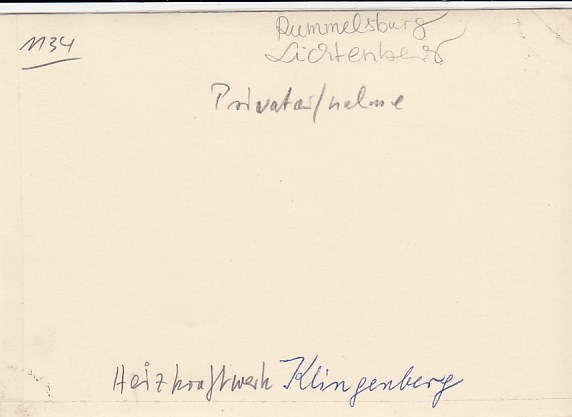 1134
Rummelsburg
Lichtenberg
Privataufnahme
Heizkraftwerk Klingenberg